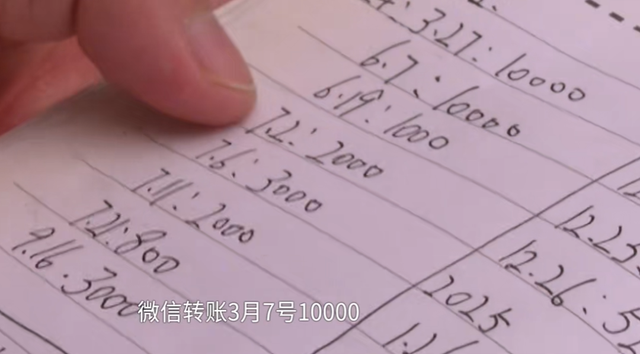 3.27:10000
6.7:10000
6.19:1000
7.2:2000
7.6:3000
7.11:2000
7.21:800
9.16.3000
12.26:5
2025
1.26
微信转账3月7号10000